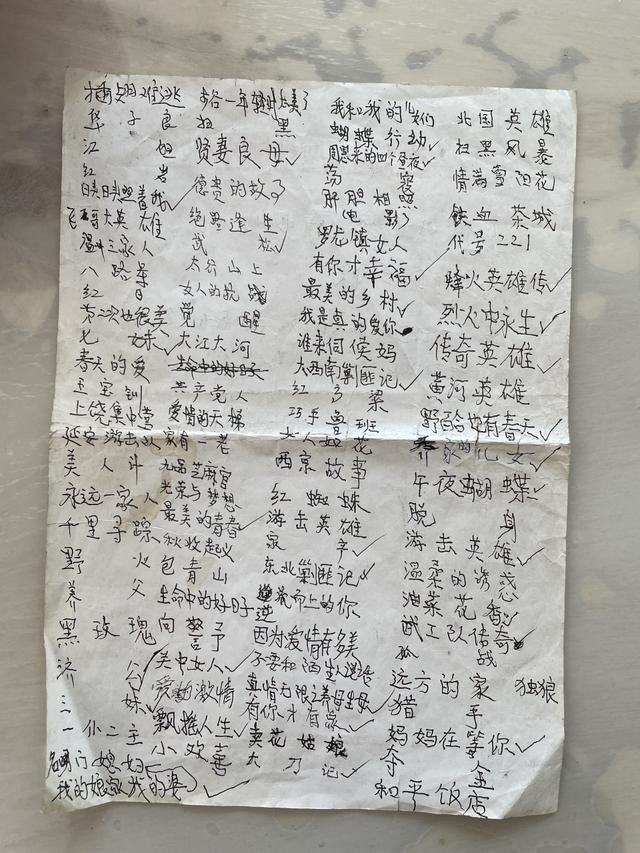 华子良
江姐
红岩
映日映照着我
飞哥大英雄
温州三家人
八路军
红日
第二次也很美
七妹
春天的爱
五宝钏
上饶集中营
延安游击队
美人计
永远一家人
千里寻踪
野火
养父
黑玫瑰
济公
三妹
一仆二主
名门媳妇
我的娘家我的婆
扫黑
贤妻良母
德贵的故事
绝路逢生
武松
太行山上
女人的抗战
觉醒
大江大河
生命中的好日子
共产党人
爱情的天梯
家有一老
九品芝麻官
光荣与梦想
最美的青春
秋收起义
包青山
生命中的好日子
向警予
关中女人
爱的激情
飘摇人生
小欢喜
我和我的儿女们
蝴蝶行动
周恩来的四个昼夜
荡寇
肝胆相照
电影
罗龙镇女人
有你才幸福
最美的乡村
我是真的爱你
谁来伺候妈
大西南剿匪记
红高粱
巧手鲁班
女人花
西京故事
红蜘蛛
游击英雄
家辛
东北剿匪记
逆流而上的你
因为爱情有多美
不要和陌生人说话
真情无限之养母生母
有你才有家
卖花姑娘
大刀记
北国英雄
扫黑风暴
情满雪阳花
铁血茶城
代号221
烽火英雄传
烈火中永生
传奇英雄
黄河英雄
野百合也有春天
养家的儿女
午夜蝴蝶
脱身
游击英雄
温柔的诱惑
油菜花香
武工队传奇
孤战
远方的家
独狼
猎手
妈妈在等你
夺金
和平饭店